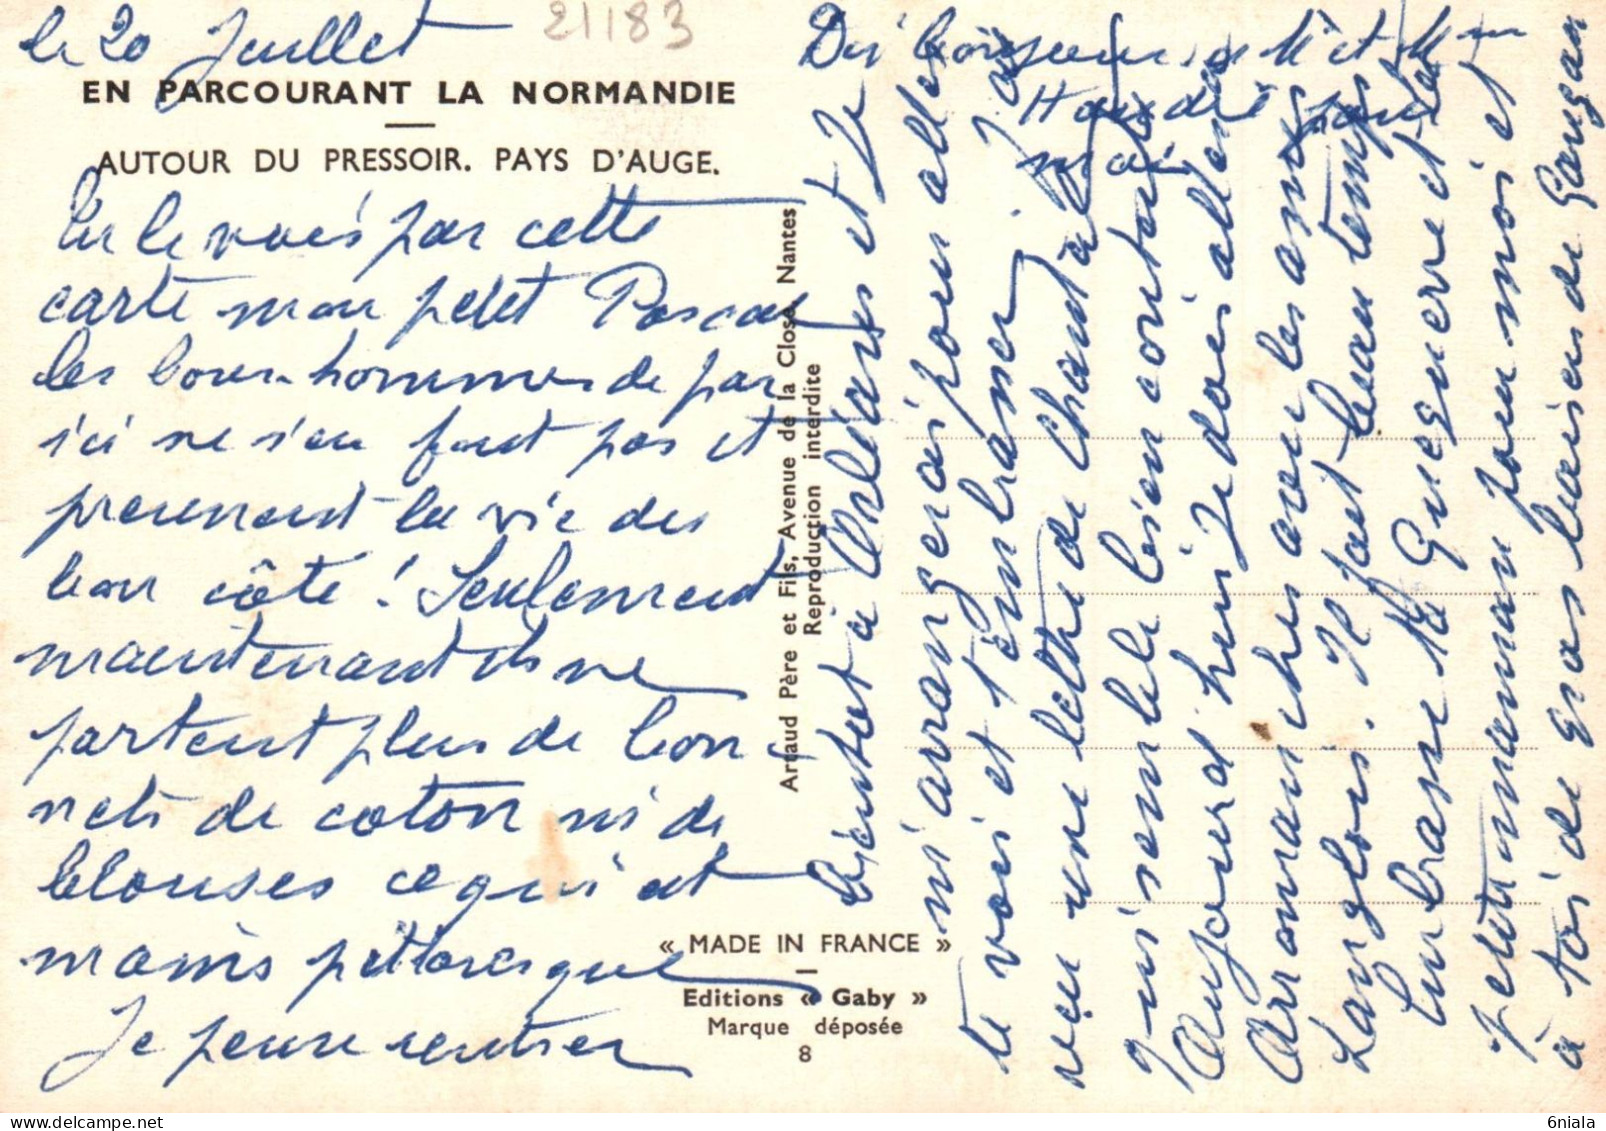 le 20 Juillet
21183
EN PARCOURANT LA NORMANDIE
AUTOUR DU PRESSOIR. PAYS D'AUGE.
Tu le vois par cette
carte mon petit Pascal
les bons hommes de par
ici ne s'en font pas et
prennent la vie du
bon côté ! Seulement
maintenant ils ne
portent plus de bon
nets de coton ni de
blouses ce qui est
moins pittoresque
Je pense rentrer
Artaud Père et Fils, Avenue de la Close, Nantes
Reproduction interdite
« MADE IN FRANCE »
Editions « Gaby »
Marque déposée
8
bientôt à Orléans et je
m'arrangerai pour aller
te voir et t'embrasser J'ai
reçu une lettre de Chantal
qui semble bien contente
Aujourd'hui je dois aller à
Arromanches avec les amis
Langlois. Il fait beau temps
Embrasse Me Gueguerre et ta
petite maman pour moi et
à toi de gros baisers de
Des bonjours à Mr et Mme
pour
moi
6niala